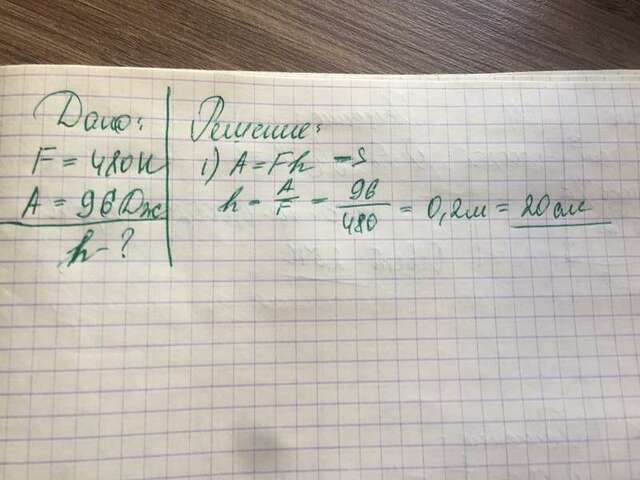 Дано:
F = 480Н
A = 96Дж
h - ?
Решение:
1) A = Fh → S
h = A/F = 96/480 = 0,2м = 20см